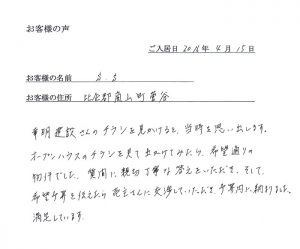 お客様の声
ご入居日 2016年 4月 15日
お客様の名前 S.S
お客様の住所 比企郡嵐山町菅谷
華明建設さんのチラシを見かけると、当時を思い出します。
オープンハウスのチラシを見て出かけてみたら、希望通りの
物件でした。質問に親切丁寧な答えをいただき、そして、
希望予算を伝えたら売主さんに交渉していただき予算内に納りました。
満足しています。